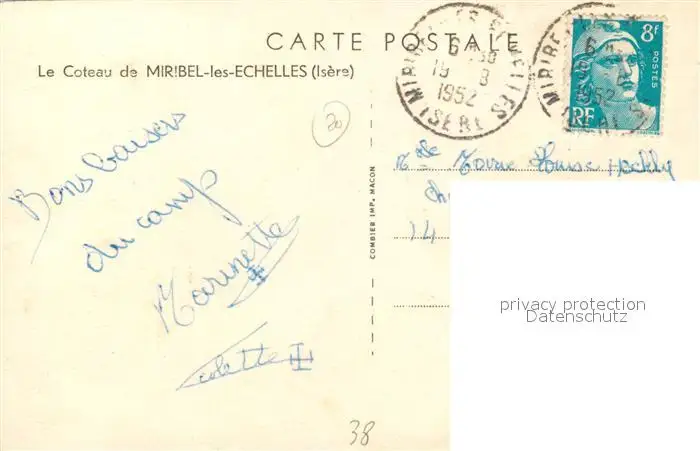 CARTE POSTALE
Le Coteau de MIRIBEL-les-ECHELLES (Isère)
MIRIBEL LES ECHELLES
6
19 8
1952
ISERE
8F
POSTES
RF
20
Bons baisers
du camp
Marinette
Colette
COMBIER IMP. MACON
Mlle Marie Louise
14
privacy protection
Datenschutz
38